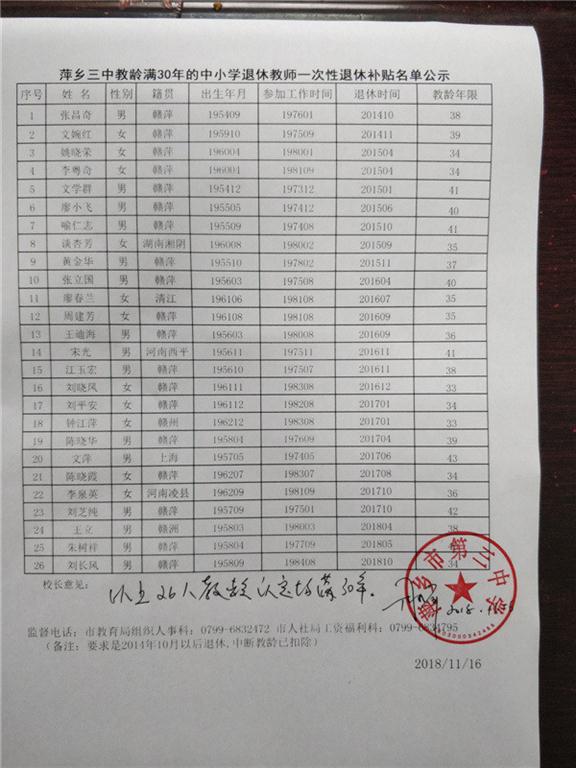 萍乡三中教龄满30年的中小学退休教师一次性退休补贴名单公示
序号 姓名 性别 籍贯 出生年月 参加工作时间 退休时间 教龄年限
1 张昌奇 男 赣萍 195409 197601 201410 38
2 文婉红 女 赣萍 195910 197509 201411 39
3 姚晓荣 女 赣萍 196004 198001 201504 34
4 李粤奇 女 赣萍 196004 198109 201504 34
5 文学群 男 赣萍 195412 197312 201501 41
6 廖小飞 男 赣萍 195505 197412 201506 40
7 喻仁志 男 赣萍 195509 197408 201510 41
8 谈杏芳 女 湖南湘阴 196008 198002 201509 35
9 黄金华 男 赣萍 195510 197802 201511 37
10 张立国 男 赣萍 195603 197508 201604 40
11 廖春兰 女 清江 196106 198108 201607 35
12 周建芳 女 赣萍 196108 198108 201609 35
13 王迪海 男 赣萍 195603 198008 201609 36
14 宋光 男 河南西平 195611 197511 201611 41
15 江玉宏 男 赣萍 195610 197507 201611 38
16 刘晓风 女 赣萍 196111 198308 201612 33
17 刘平安 女 赣萍 196112 198208 201701 34
18 钟江萍 女 赣州 196212 198308 201701 33
19 陈晓华 男 赣萍 195804 197609 201704 39
20 文萍 男 上海 195705 197405 201706 43
21 陈晓霞 女 赣萍 196207 198307 201708 34
22 李泉英 女 河南凌县 196209 198109 201710 36
23 刘芝纯 男 赣萍 195709 197501 201710 42
24 王立 男 赣洲 195803 198003 201804 38
25 朱树祥 男 赣萍 195804 197709 201805
26 刘长风 男 赣萍 195809 198408 201810 34
校长意见：以上26人教龄认定均满30年。
萍乡市第三中学
监督电话：市教育局组织人事科：0799-6832472 市人社局工资福利科：0799-6834795
（备注：要求是2014年10月以后退休,中断教龄已扣除）
2018/11/16